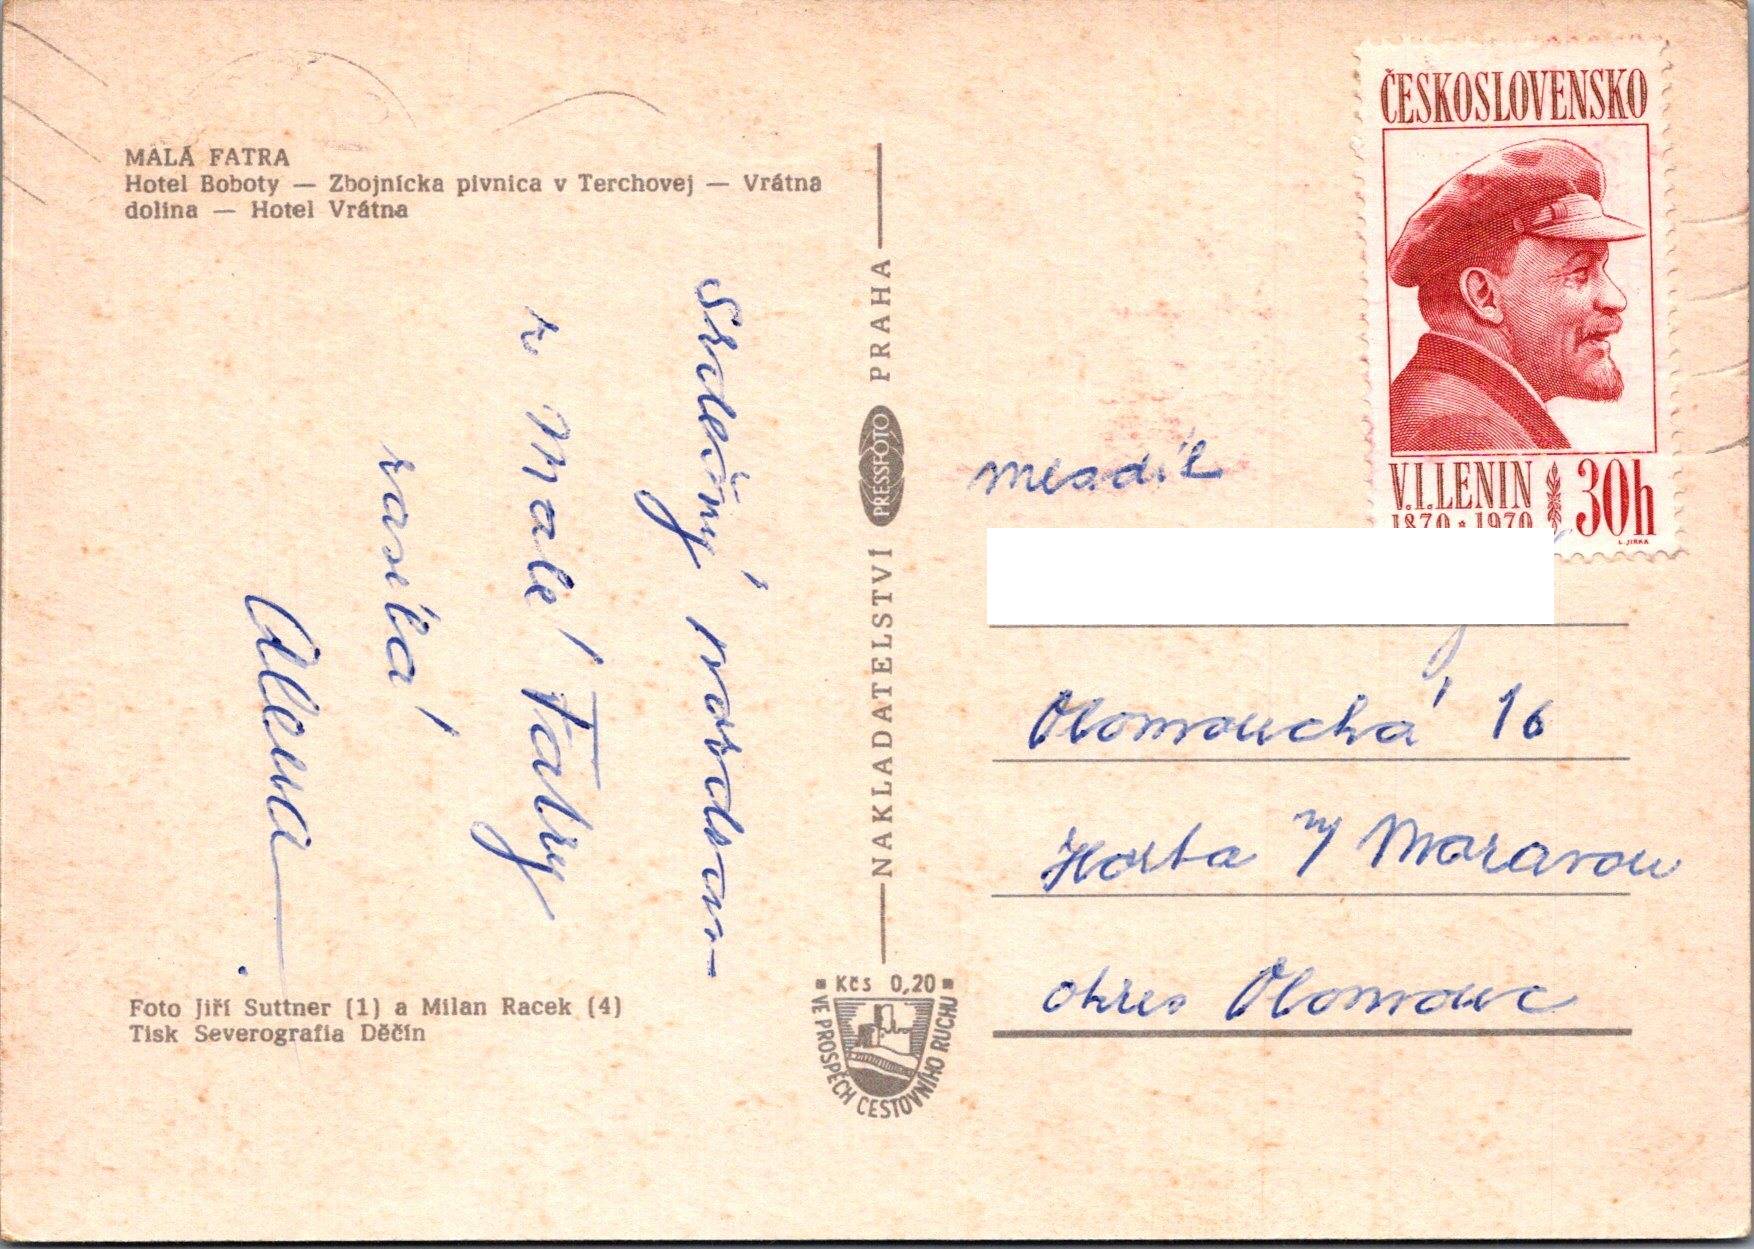 MALÁ FATRA
Hotel Boboty — Zbojnícka pivnica v Terchovej — Vrátna
dolina — Hotel Vrátna
Srdečný pozdrav
z Malé Fatry
zasílá
Alena
Foto Jiří Suttner (1) a Milan Racek (4)
Tisk Severografia Děčín
NAKLADATELSTVÍ PRESSFOTO PRAHA
Kčs 0,20
VE PROSPĚCH CESTOVNÍHO RUCHU
ČESKOSLOVENSKO
V.I.LENIN 30h
1870 * 1970
L. JIRKA
Olomoucká 16
Horka n/ Moravou
okres Olomouc